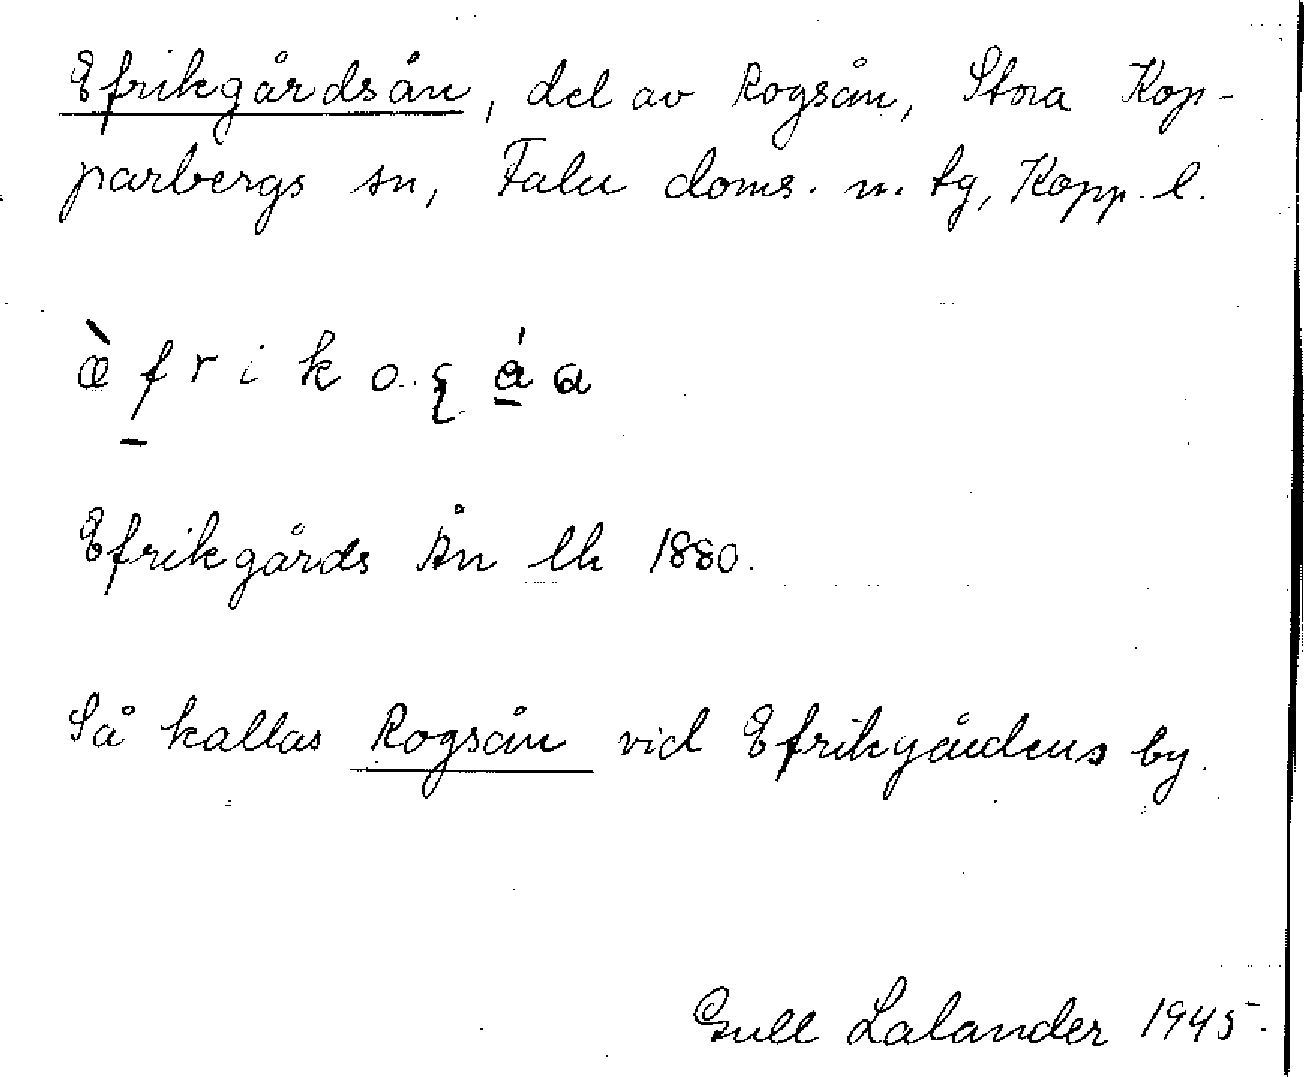 Efrikgårdsån, del av Rogsån, Stora Kop-
parbergs sn, Falu doms. n. tg, Kopp. l.
Efrikgårds Ån lk 1880.
Så kallas Rogsån vid Efrikgårdens by.
Gull Lalander 1945.